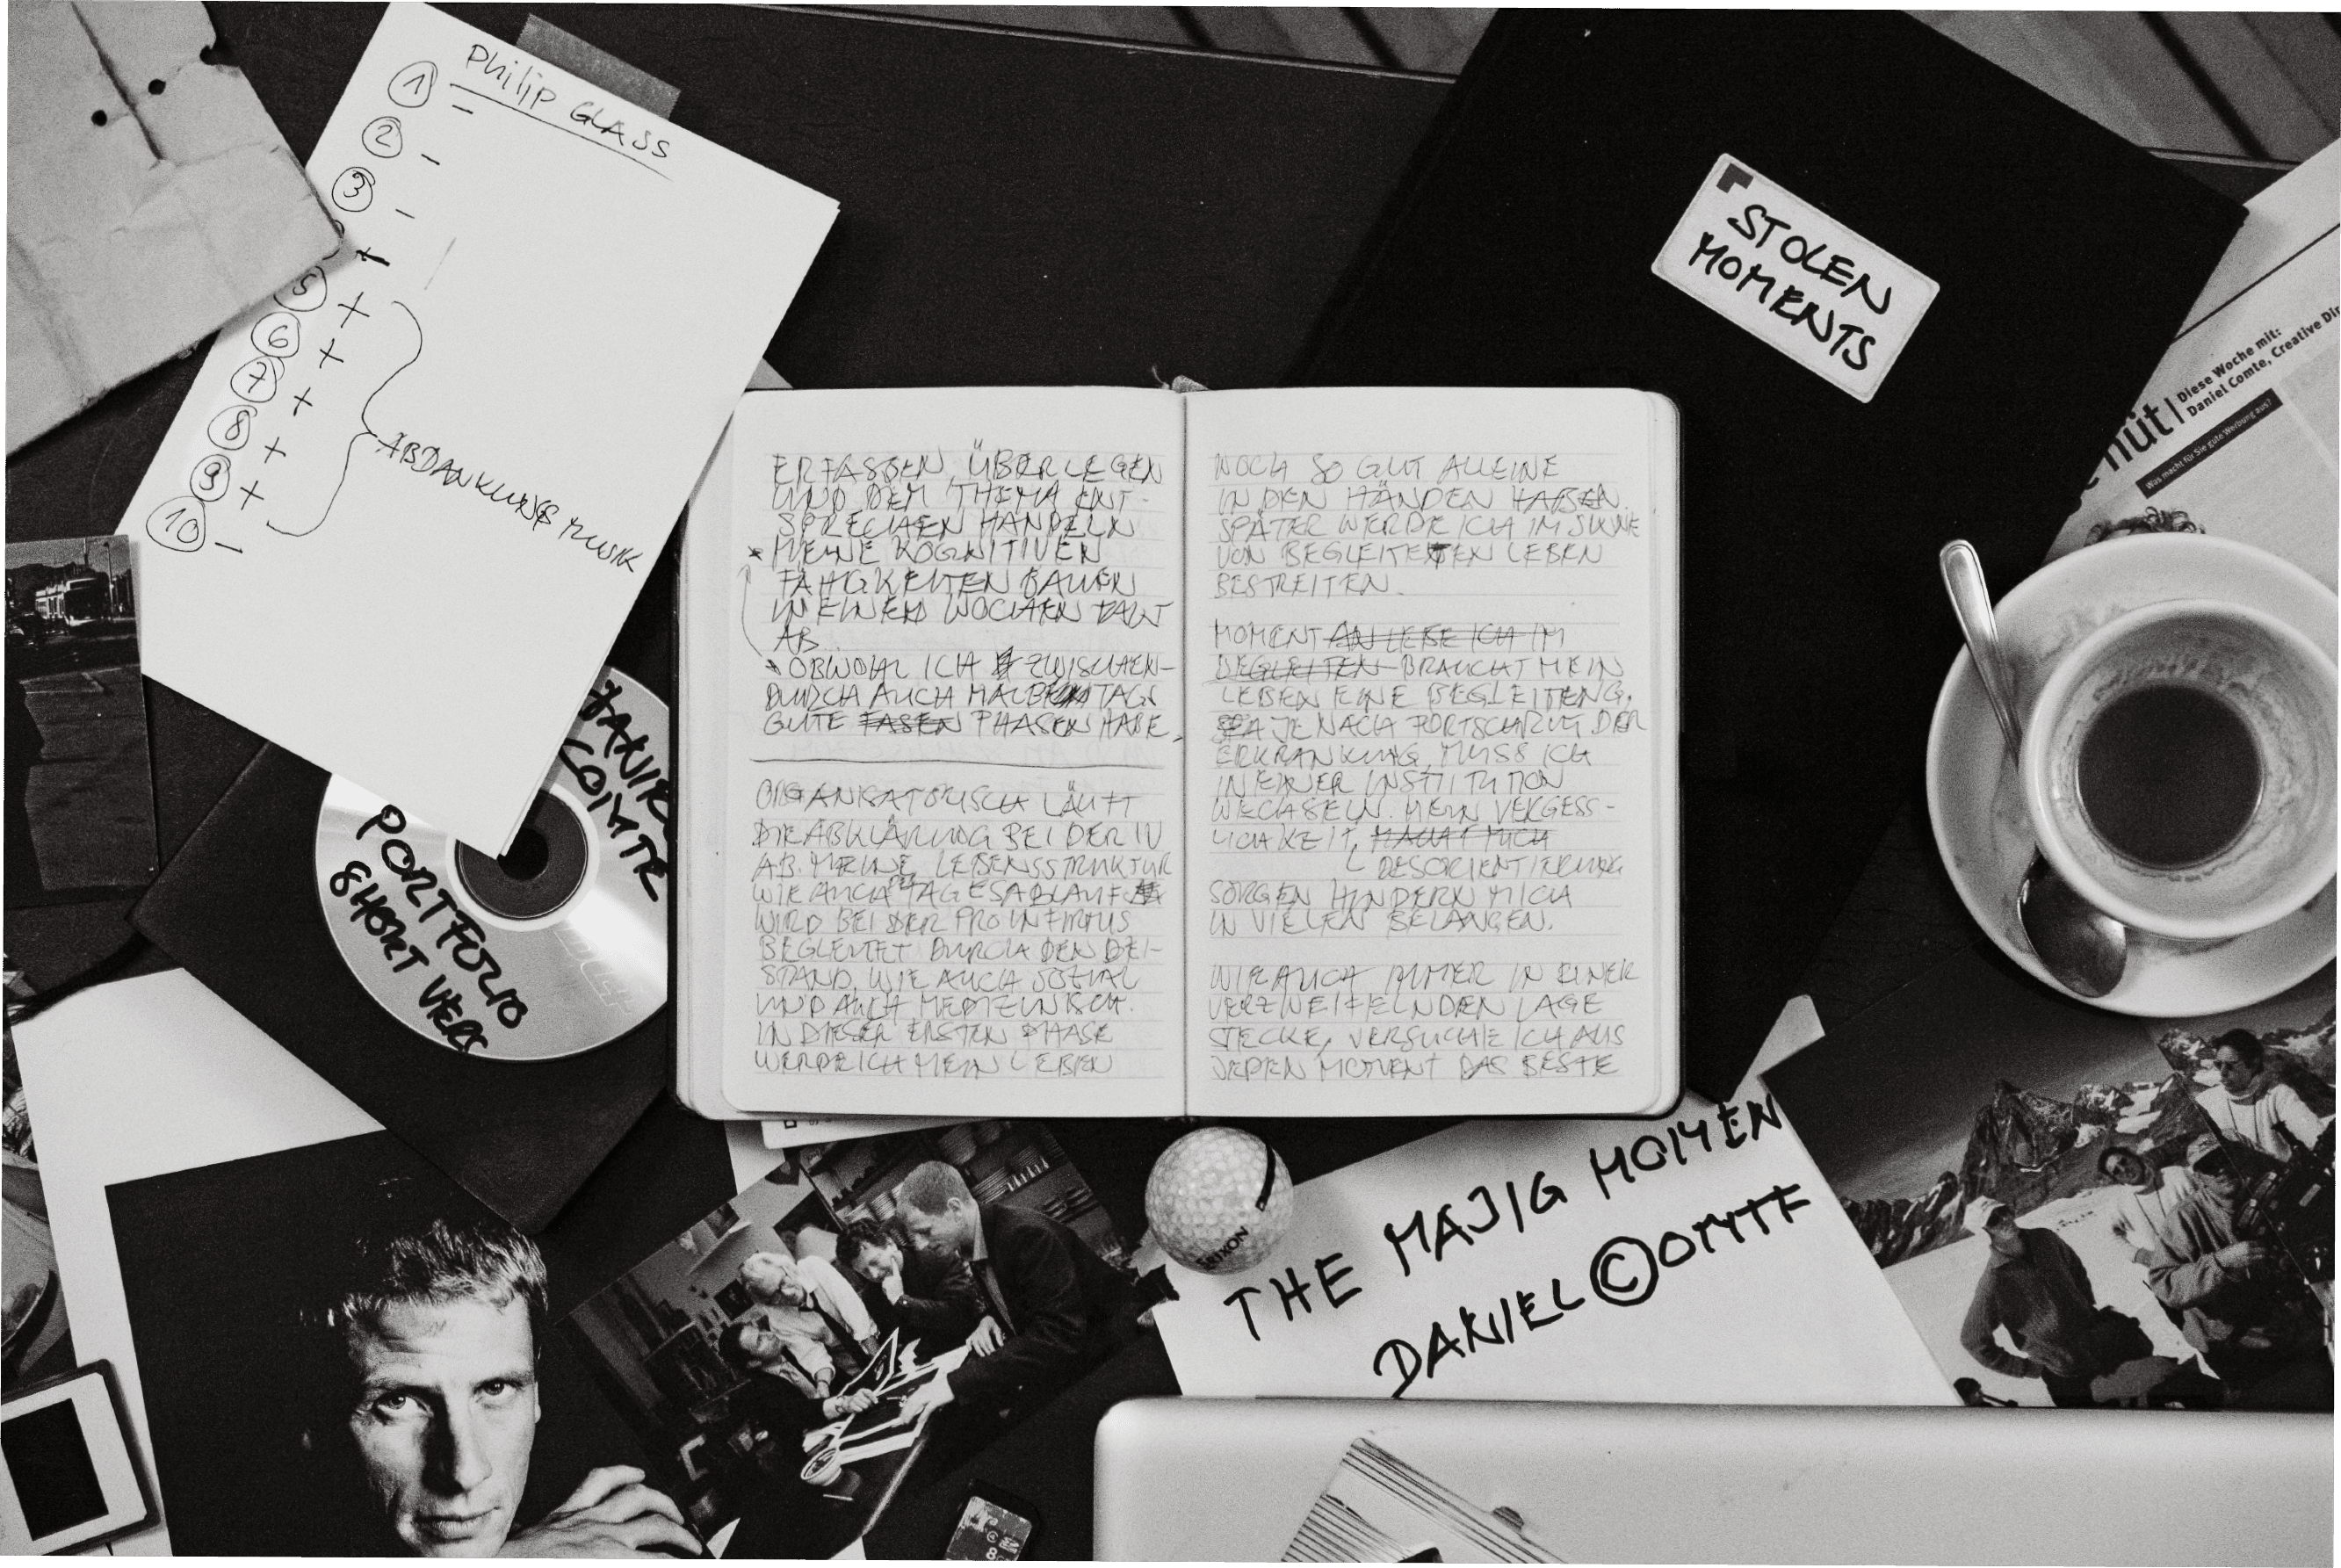 Philip GLASS
1 –
2 –
3 –
+
5 +
6 +
7 +
8 +
9 +
10 –
ABDANKUNGSMUSIK
STOLEN
MOMENTS
Diese Woche mit:
Daniel Comte, Creative Dir
nüt |
Was macht für Sie gute Werbung aus?
ERFASSEN, ÜBERLEGEN
UND DEM THEMA ENT-
SPRECHEN HANDELN
* MEINE KOGNITIVEN
FÄHIGKEITEN BAUEN
IN EINEM WOCHEN TAKT
AB.
* OBWOHL ICH ZWISCHEN-
DURCH AUCH HALB TAGS
GUTE FASEN PHASEN HABE,
ORGANISATORISCH LÄUFT
DIE ABKLÄRUNG BEI DER IV
AB. MEINE LEBENSSTRUKTUR
WIE AUCH DER TAGESABLAUF
WIRD BEI DER PRO INFIRMIS
BEGLEITET DURCH DEN BEI-
STAND, WIE AUCH SOZIAL
UND AUCH MEDIZINISCH.
IN DIESER ERSTEN PHASE
WERDE ICH MEIN LEBEN
NOCH SO GUT ALLEINE
IN DEN HÄNDEN HABEN.
SPÄTER WERDE ICH IM SINNE
VON BEGLEITETEN LEBEN
BESTREITEN.
MOMENT AN LEBE ICH IM
BEGLEITEN BRAUCHT MEIN
LEBEN EINE BEGLEITENG,
JE NACH FORTSCHRITT DER
ERKRANKUNG, MUSS ICH
IN EINER INSTITUTION
WECHSELN. MEIN VERGESS-
LICHKEIT, MACHT MICH
DESORIENTIERUNG
SORGEN HINDERN MICH
IN VIELEN BELANGEN.
WIE AUCH IMMER IN EINER
VERZWEIFELNDEN LAGE
STECKE, VERSUCHE ICH AUS
JEDEN MOMENT DAS BESTE
DANIEL
COMTE
PORTFOLIO
SHORT VERS
SRIXON
THE MAJIG MOMEN
DANIEL ©OMTE